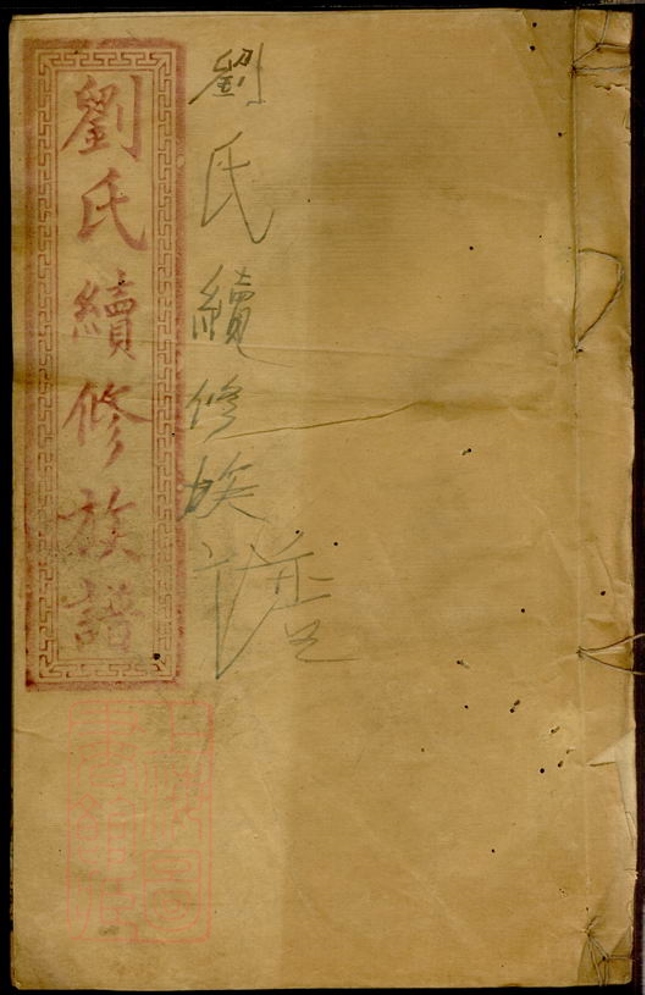 劉氏續修族譜
劉氏續修族譜